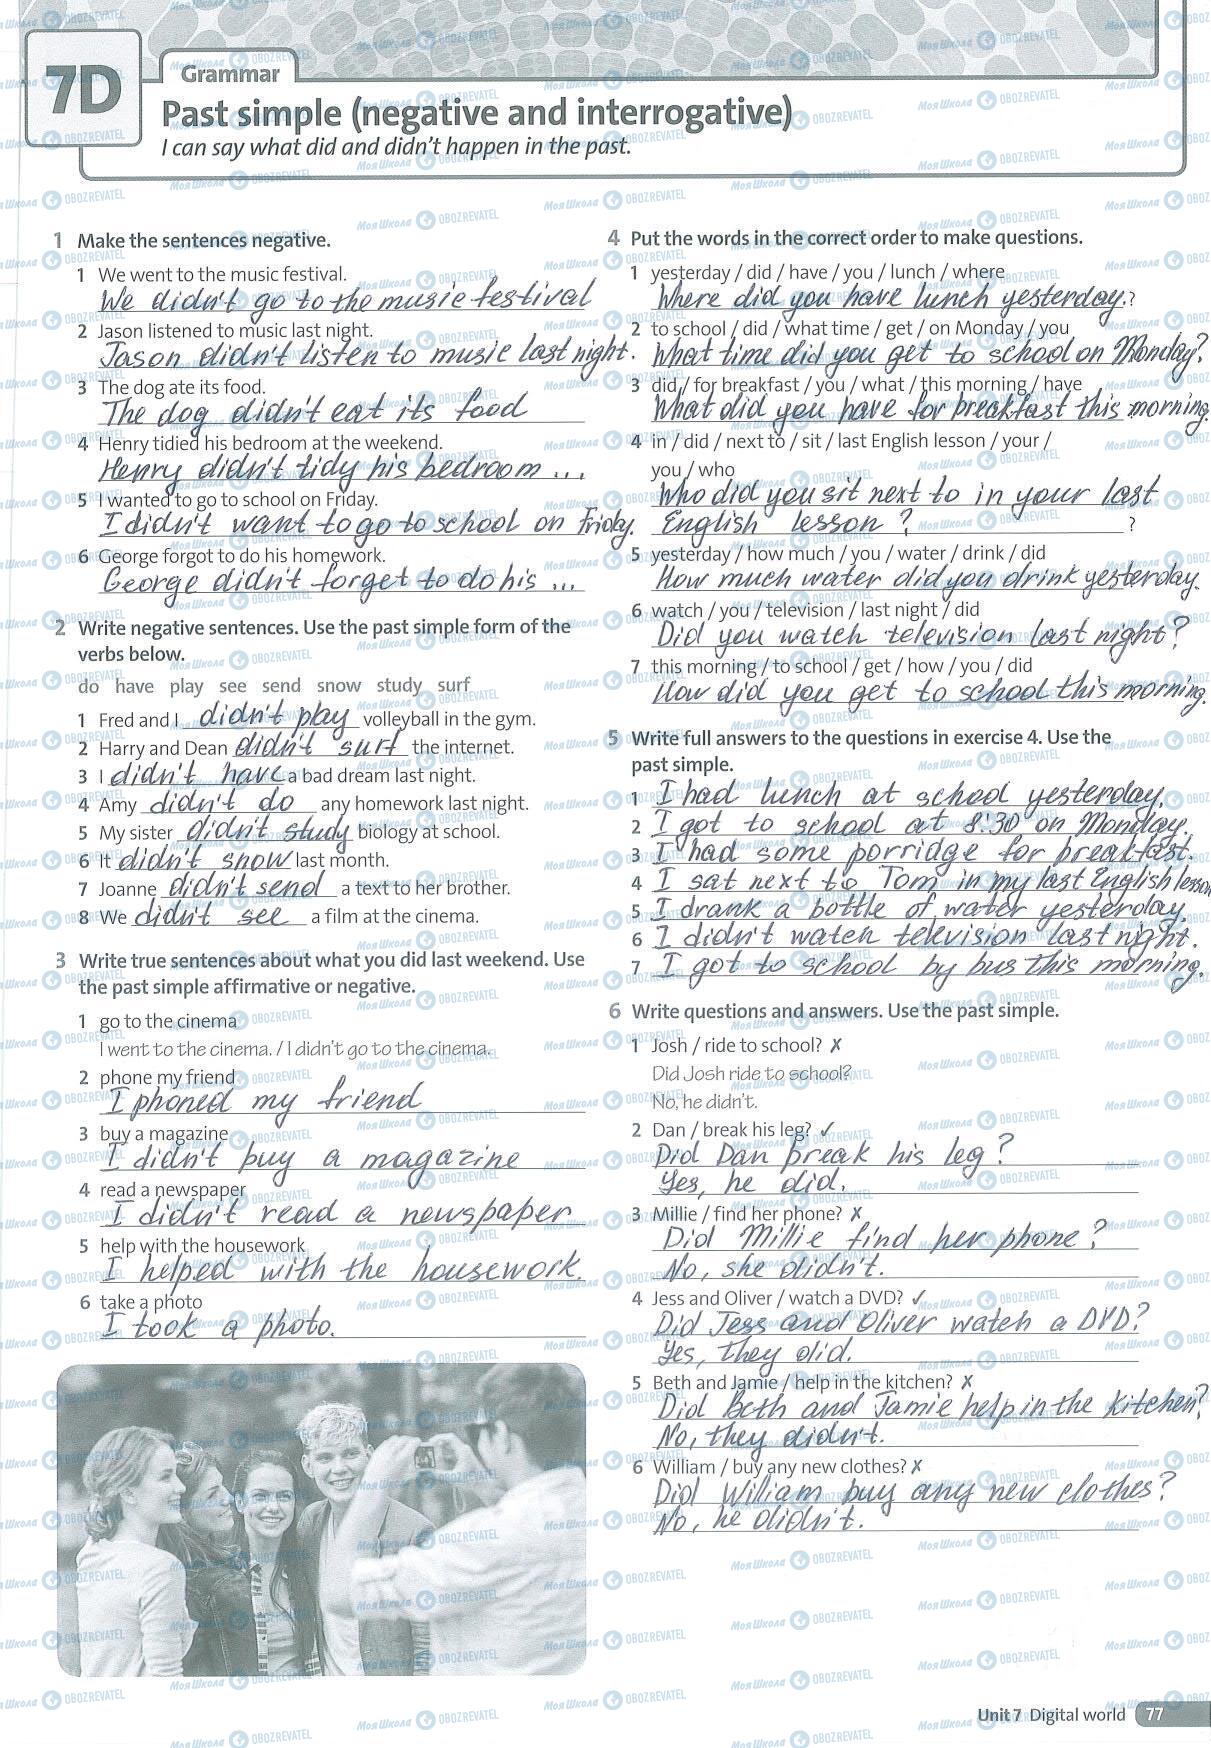 7D
Grammar
Past simple (negative and interrogative)
I can say what did and didn't happen in the past.
1 Make the sentences negative.
1 We went to the music festival.
We didn't go to the music festival
2 Jason listened to music last night.
Jason didn't listen to music last night.
3 The dog ate its food.
The dog didn't eat its food
4 Henry tidied his bedroom at the weekend.
Henry didn't tidy his bedroom ...
5 I wanted to go to school on Friday.
I didn't want to go to school on Friday.
6 George forgot to do his homework.
George didn't forget to do his ...
2 Write negative sentences. Use the past simple form of the
verbs below.
do have play see send snow study surf
1 Fred and I didn't play volleyball in the gym.
2 Harry and Dean didn't surf the internet.
3 I didn't have a bad dream last night.
4 Amy didn't do any homework last night.
5 My sister didn't study biology at school.
6 It didn't snow last month.
7 Joanne didn't send a text to her brother.
8 We didn't see a film at the cinema.
3 Write true sentences about what you did last weekend. Use
the past simple affirmative or negative.
1 go to the cinema
I went to the cinema. / I didn't go to the cinema.
2 phone my friend
I phoned my friend
3 buy a magazine
I didn't buy a magazine
4 read a newspaper
I didn't read a newspaper
5 help with the housework
I helped with the housework.
6 take a photo
I took a photo.
4 Put the words in the correct order to make questions.
1 yesterday / did / have / you / lunch / where
Where did you have lunch yesterday.?
2 to school / did / what time / get / on Monday / you
What time did you get to school on Monday?
3 did / for breakfast / you / what / this morning / have
What did you have for breakfast this morning.
4 in / did / next to / sit / last English lesson / your /
you / who
Who did you sit next to in your last
English lesson? ?
5 yesterday / how much / you / water / drink / did
How much water did you drink yesterday.
6 watch / you / television / last night / did
Did you watch television last night?
7 this morning / to school / get / how / you / did
How did you get to school this morning.
5 Write full answers to the questions in exercise 4. Use the
past simple.
1 I had lunch at school yesterday.
2 I got to school at 8:30 on Monday.
3 I had some porridge for breakfast.
4 I sat next to Tom in my last English lesson
5 I drank a bottle of water yesterday.
6 I didn't watch television last night.
7 I got to school by bus this morning.
6 Write questions and answers. Use the past simple.
1 Josh / ride to school? ✗
Did Josh ride to school?
No, he didn't.
2 Dan / break his leg? ✓
Did Dan break his leg?
Yes, he did.
3 Millie / find her phone? ✗
Did Millie find her phone?
No, she didn't.
4 Jess and Oliver / watch a DVD? ✓
Did Jess and Oliver watch a DVD?
Yes, they did.
5 Beth and Jamie / help in the kitchen? ✗
Did Beth and Jamie help in the kitchen?
No, they didn't.
6 William / buy any new clothes? ✗
Did William buy any new clothes?
No, he didn't.
Unit 7 Digital world 77
Моя Школа OBOZREVATEL